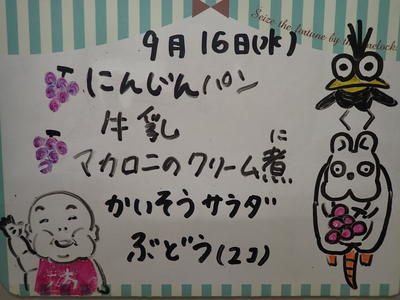 Seize the fortune by the forelock
9月16日(水)
にんじんパン
牛乳
に
マカロニのクリーム煮
かいそうサラダ
ぶどう(2コ)